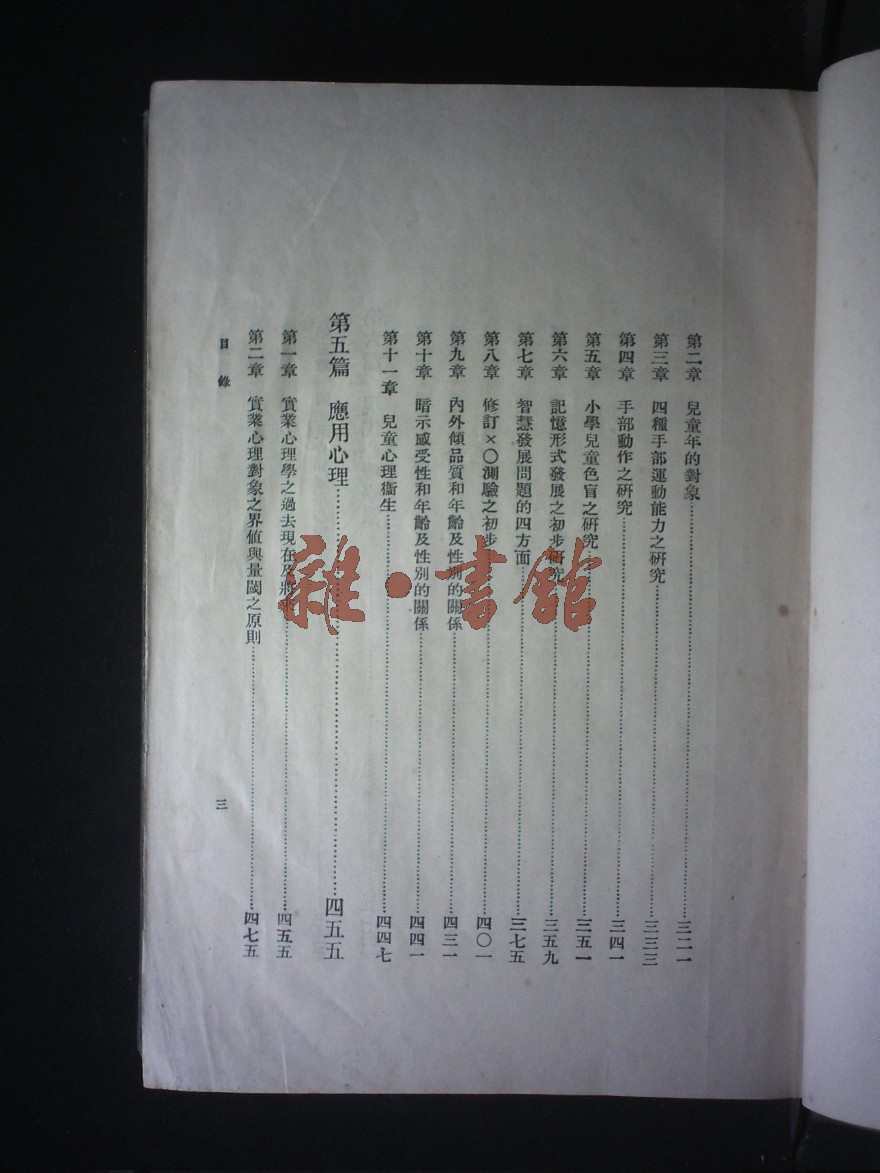 第二章　兒童年的對象……三二一
第三章　四種手部運動能力之研究……三三三
第四章　手部動作之研究……三四一
第五章　小學兒童色盲之研究……三五一
第六章　記憶形式發展之初步研究……三五九
第七章　智慧發展問題的四方面……三七五
第八章　修訂×〇測驗之初步……四〇一
第九章　內外傾品質和年齡及性別的關係……四三一
第十章　暗示感受性和年齡及性別的關係……四四一
第十一章　兒童心理衞生……四四七
第五篇　應用心理……四五五
第一章　實業心理學之過去現在及將來……四五五
第二章　實業心理對象之界値與量閾之原則……四七五
目錄
三
雜·書館